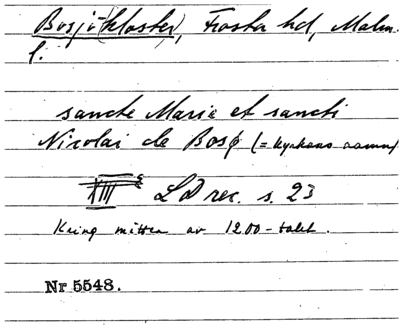 Bosjö(kloster), Frosta hd, Malm.
l.
sancte Marie et sancti
Nicolai de Bosø (= kyrkans namn)
LD rec. s. 23
Kring mitten av 1200-talet.
Nr 5548.